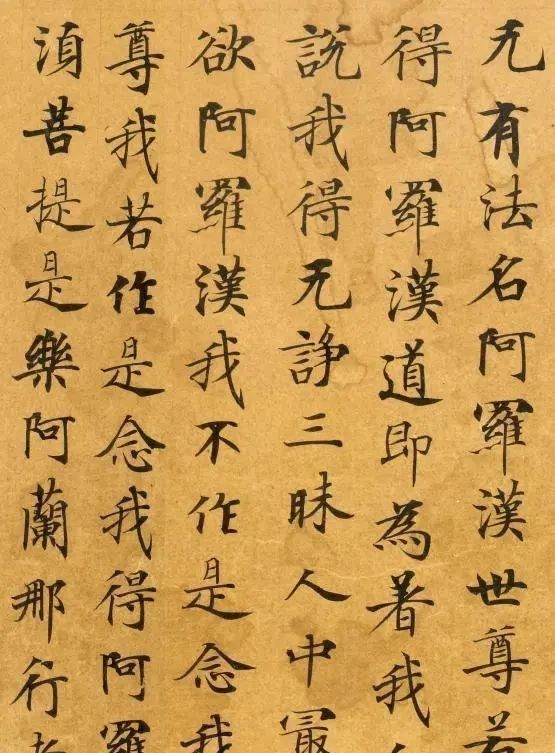 无有法名阿羅漢世尊若
得阿羅漢道即為著我
說我得无諍三昧人中㝡
欲阿羅漢我不作是念我
尊我若作是念我得阿羅
湏菩提是樂阿蘭那行